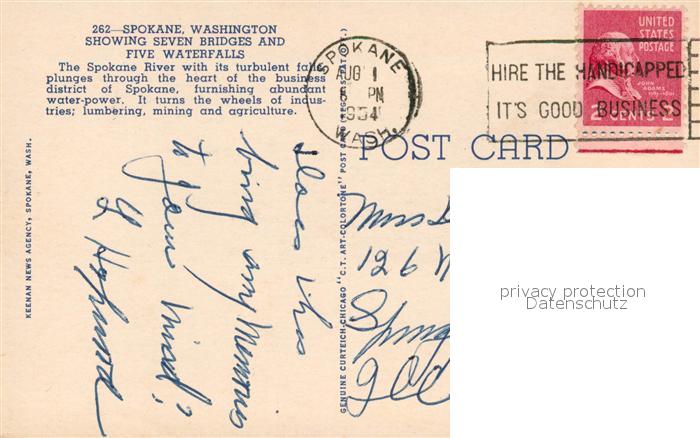 262—SPOKANE, WASHINGTON
SHOWING SEVEN BRIDGES AND
FIVE WATERFALLS
The Spokane River with its turbulent falls
plunges through the heart of the business
district of Spokane, furnishing abundant
water-power. It turns the wheels of indus-
tries; lumbering, mining and agriculture.
KEENAN NEWS AGENCY, SPOKANE, WASH.
Does this
bring any Memories
to your mind?
GENUINE CURTEICH-CHICAGO "C.T. ART-COLORTONE" POST CARD
SPOKANE
AUG 1
PM
1954
WASH.
HIRE THE HANDICAPPED
IT'S GOOD BUSINESS
UNITED
STATES
POSTAGE
JOHN
ADAMS
2 CENTS 2
POST CARD
Miss
126
privacy protection
Datenschutz